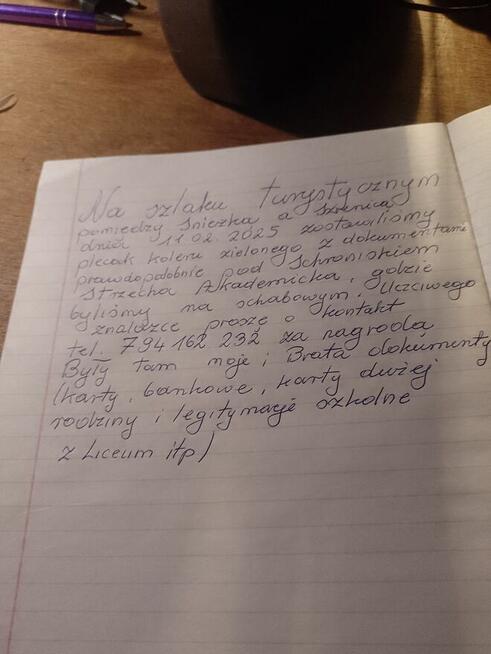 Na szlaku turystycznym
pomiędzy Śnieżką a Szrenicą
dnia 11.02.2025 zostawiliśmy
plecak koloru zielonego z dokumentami
prawdopodobnie pod Schroniskiem
Strzecha Akademicka, gdzie
byliśmy na schabowym. Uczciwego
znalazce prosze o kontakt
tel. 794 162 232 za nagrodą
Były tam moje i Brata dokumenty
(karty, bankowe, karty dużej
rodziny i legitymacje szkolne
z Liceum itp)